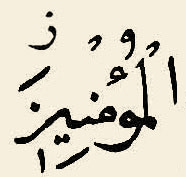 الْمُؤْمِنِيْنَ ز